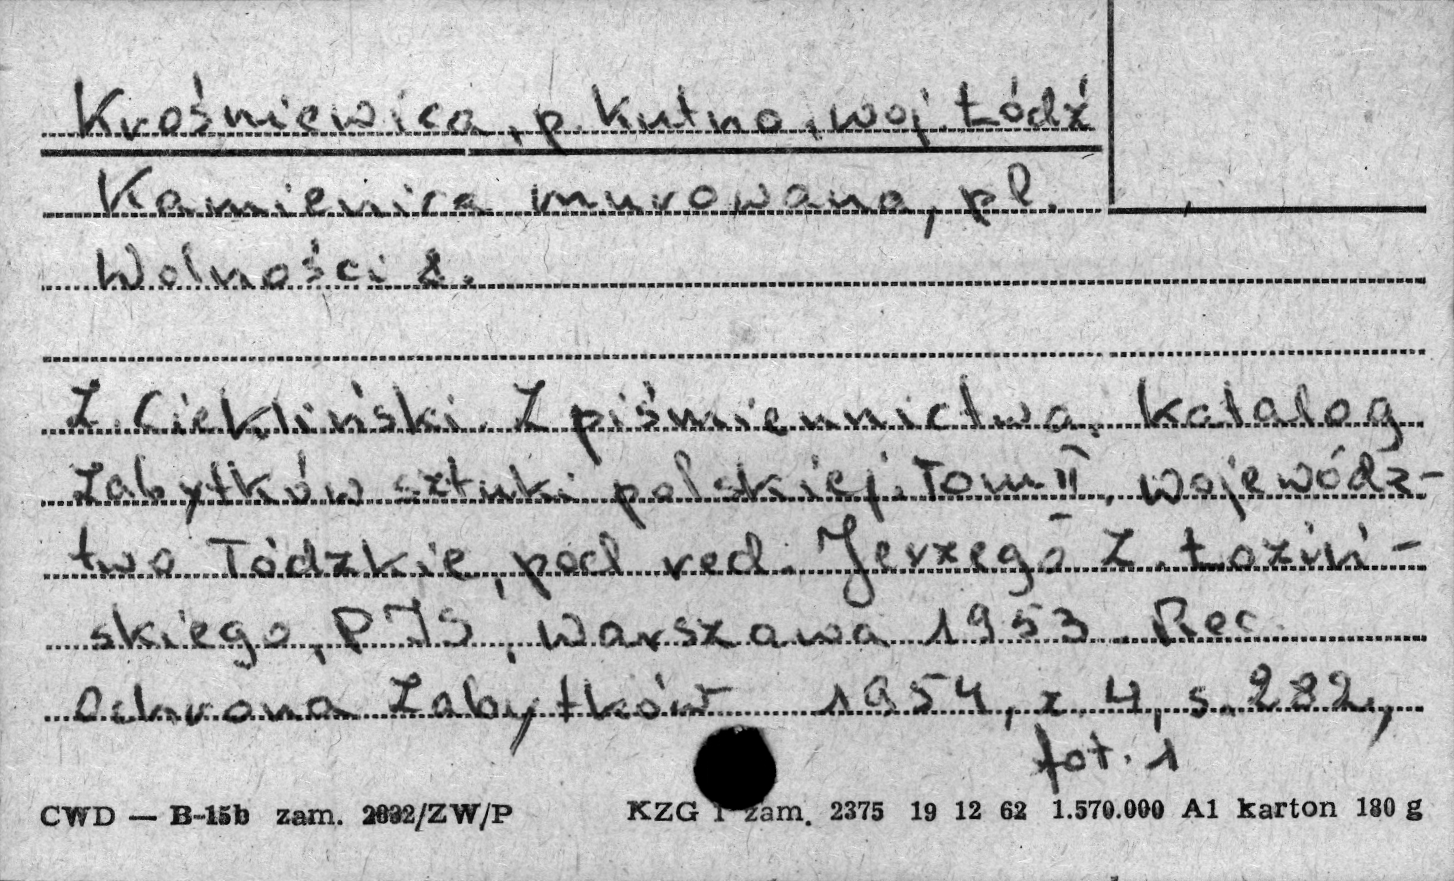 Krośniewica, p. Kutno, woj. Łódź
Kamienica murowana, pl.
Wolności 8.
Z. Ciekliński. Z piśmiennictwa. Katalog
Zabytków sztuki polskiej. Tom II. Wojewódz-
two Łódzkie, pod red. Jerzego Z. Łoziń-
skiego, PIS, Warszawa 1953. Rec.
Ochrona Zabytków 1954, z. 4, s. 282,
fot. 1
CWD — B-15b zam. 2032/ZW/P KZG 1 zam. 2375 19 12 62 1.570.000 A1 karton 180 g